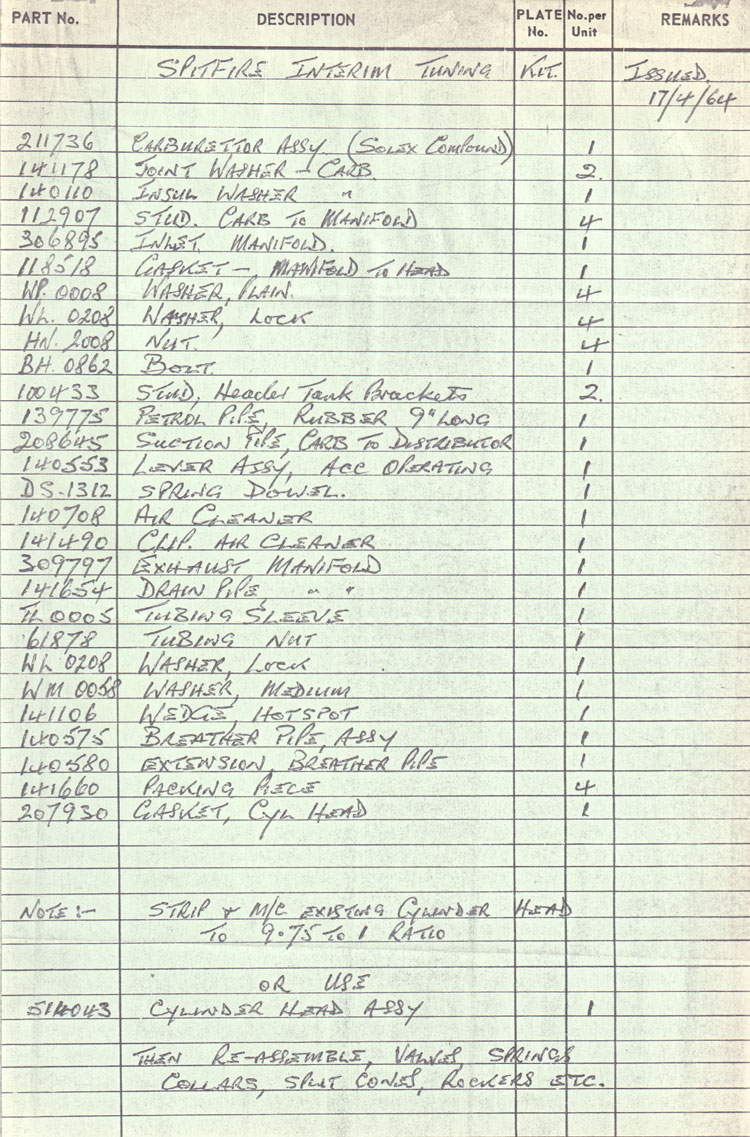 PART No. DESCRIPTION PLATE No. No. per Unit REMARKS
SPITFIRE INTERIM TUNING KIT. ISSUED.
17/4/64
211736 CARBURETTOR ASSY (SOLEX COMPOUND) 1
141178 JOINT WASHER - CARB 2.
140110 INSUL WASHER " 1
112907 STUD. CARB TO MANIFOLD 4
306895 INLET MANIFOLD. 1
118518 GASKET -, MANIFOLD TO HEAD 1
WP. 0008 WASHER, PLAIN. 4
WL. 0208 WASHER, LOCK 4
HN. 2008 NUT. 4
BH. 0862 BOLT. 1
100433 STUD, Header Tank Brackets 2.
139775 PETROL PIPE, RUBBER 9" LONG 1
208645 SUCTION PIPE, CARB TO DISTRIBUTOR 1
140553 LEVER ASSY, ACC OPERATING 1
DS-1312 SPRING DOWEL. 1
140708 AIR CLEANER 1
141490 CLIP. AIR CLEANER 1
309797 EXHAUST MANIFOLD 1
141654 DRAIN PIPE, " " 1
TL0005 TUBING SLEEVE 1
61878 TUBING NUT 1
WL 0208 WASHER, LOCK 1
WM 0058 WASHER, MEDIUM 1
141106 WEDGE, HOTSPOT 1
140575 BREATHER PIPE, ASSY 1
140580 EXTENSION, BREATHER PIPE 1
141660 PACKING PIECE 4
207930 GASKET, CYL HEAD 1
NOTE:- STRIP & M/C EXISTING CYLINDER HEAD
TO 9.75 TO 1 RATIO
OR USE
514043 CYLINDER HEAD ASSY 1
THEN RE-ASSEMBLE, VALVES SPRINGS
COLLARS, SPLIT CONES, ROCKERS ETC.